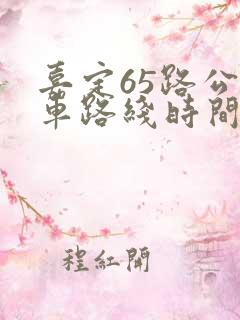 嘉定65路公
車路綫時間
程紅開